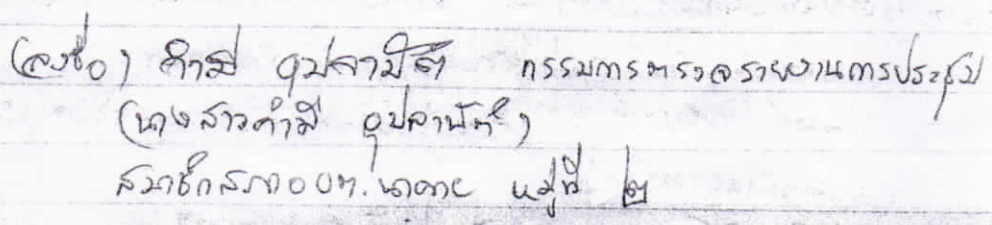 (ลงชื่อ) คำมี อุปลาบัติ กรรมการตรวจรายงานการประชุม
(นางสาวคำมี อุปลาบัติ)
สมาชิกสภาอบต.นาคาย หมู่ที่ ๒